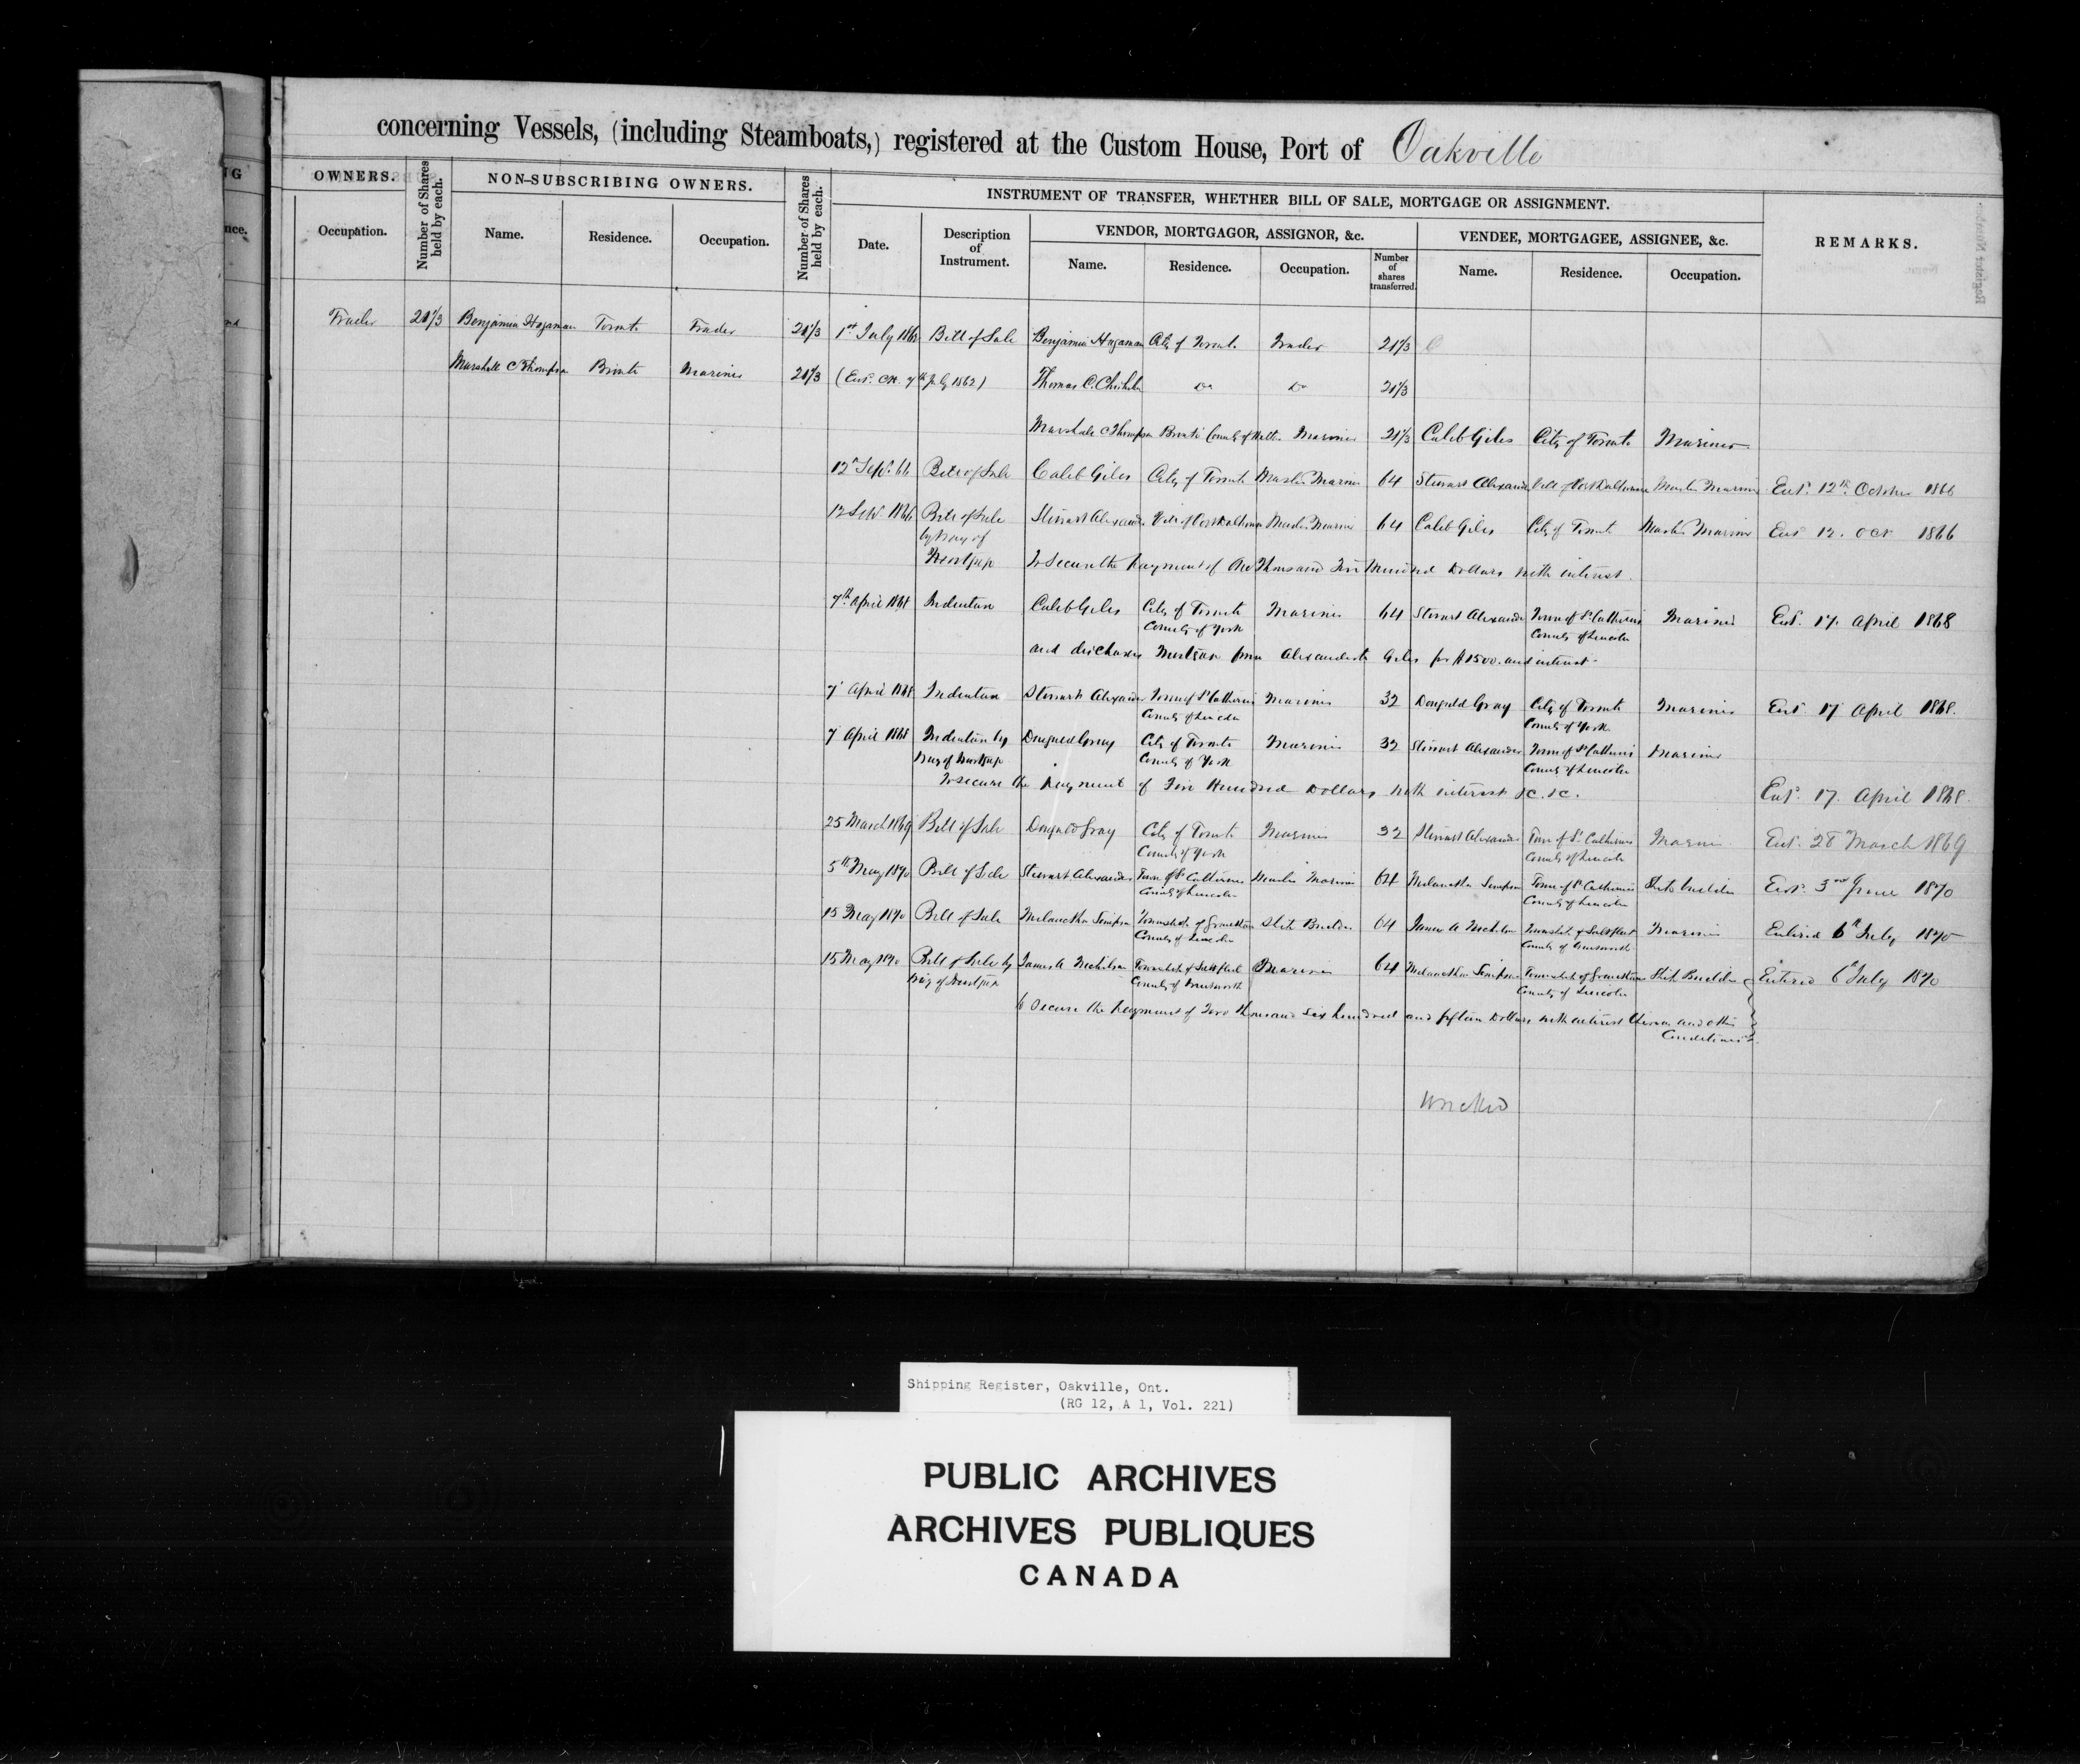 concerning Vessels, (including Steamboats,) registered at the Custom House, Port of Oakville
NG
OWNERS.
Number of Shares held by each.
NON-SUBSCRIBING OWNERS.
Number of Shares held by each.
INSTRUMENT OF TRANSFER, WHETHER BILL OF SALE, MORTGAGE OR ASSIGNMENT.
REMARKS.
nce.
Occupation.
Name.
Residence.
Occupation.
Date.
Description of Instrument.
VENDOR, MORTGAGOR, ASSIGNOR, &c.
VENDEE, MORTGAGEE, ASSIGNEE, &c.
Name.
Residence.
Occupation.
Number of shares transferred.
Name.
Residence.
Occupation.
Trader 21 1/3 Benjamin Hagaman Toronto Trader 21 1/3 1st July 1862 Bill of Sale Benjamin Hagaman City of Toront. Trader 21 1/3
Marshall C Thompson Bronte Mariner 21 1/3 (Ent. CH. 7th July 1862) Thomas C. Do Do 21 1/3
Marshall C Thompson Bronte County of Halton Mariner 21 1/3 Caleb Giles City of Toronto Mariner
12 Sept. 66 Bill of Sale Caleb Giles City of Toronto Master Mariner 64 Stewart Alexander Vill of Port Dalhousie Master Mariner Ent. 12th October 1866
12 Sept 1866 Bill of Sale Stewart Alexander Vill of Port Dalhousie Master Mariner 64 Caleb Giles City of Toronto Master Mariner Ent 12. Oct 1866
by Way of
Mortgage To Secure the Payment of One Thousand Five Hundred Dollars with interest.
7th April 1868 Indenture Caleb Giles City of Toronto Mariner 64 Stewart Alexander Town of St Catherines Mariner Ent. 17. April 1868
County of York County of Lincoln
and discharges Mortgage from Alexander to Giles for $1500. and interest.
7 April 1868 Indenture Stewart Alexander Town of St Catherines Mariner 32 Dougald Gray City of Toronto Mariner Ent. 17 April 1868.
County of Lincoln County of York
7 April 1868 Indenture by Dougald Gray City of Toronto Mariner 32 Stewart Alexander Town of St Catherines Mariner
Way of Mortgage County of York County of Lincoln
To secure the payment of Five Hundred Dollars with interest &c. &c. Ent. 17. April 1868.
25 March 1869 Bill of Sale Dougald Gray City of Toronto Mariner 32 Stewart Alexander Town of St Catherines Mariner Ent. 28 March 1869
County of York County of Lincoln
5th May 1870 Bill of Sale Stewart Alexander Town of St Catherines Master Mariner 64 Melancthon Simpson Town of St Catherines Ship builder Ent. 3rd June 1870
County of Lincoln County of Lincoln
15 May 1870 Bill of Sale Melancthon Simpson Township of Grantham Ship Builder 64 James A Township of Saltfleet Mariner Entered 6th July 1870
County of Lincoln County of Wentworth
15 May 1870 Bill of Sale by James A Township of Saltfleet Mariner 64 Melancthon Simpson Township of Grantham Ship Builder Entered 6th July 1870
Way of Mortgage County of Wentworth County of Lincoln
to Secure the Payment of Two thousand six hundred and fifteen Dollars with interest thereon and other
Conditions
Wrecked
Shipping Register, Oakville, Ont.
(RG 12, A 1, Vol. 221)
PUBLIC ARCHIVES
ARCHIVES PUBLIQUES
CANADA